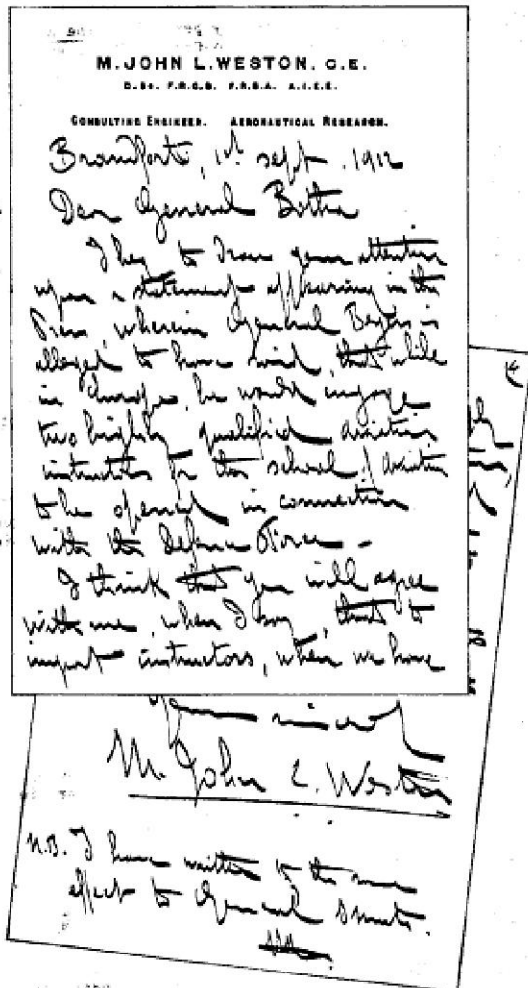 M. JOHN L. WESTON. C.E.
D.Sc. F.R.G.S. F.R.S.A. A.I.E.E.
CONSULTING ENGINEER. AERONAUTICAL RESEARCH.
Brandfort, 1st Sept. 1912
Dear General Botha
I beg to draw your attention
upon a statement appearing in the
Press, wherein General Beyers is
alleged to have said, that while
in Europe, he would engage
two highly qualified aviation
instructors for the school of aviation
to be opened in connection
with the Defence Force -
I think that you will agree
with me, when I say, that to
import instructors, when we have
Yours sincerely
M. John L. Weston
N.B. I have written to the same
effect to General Smuts.